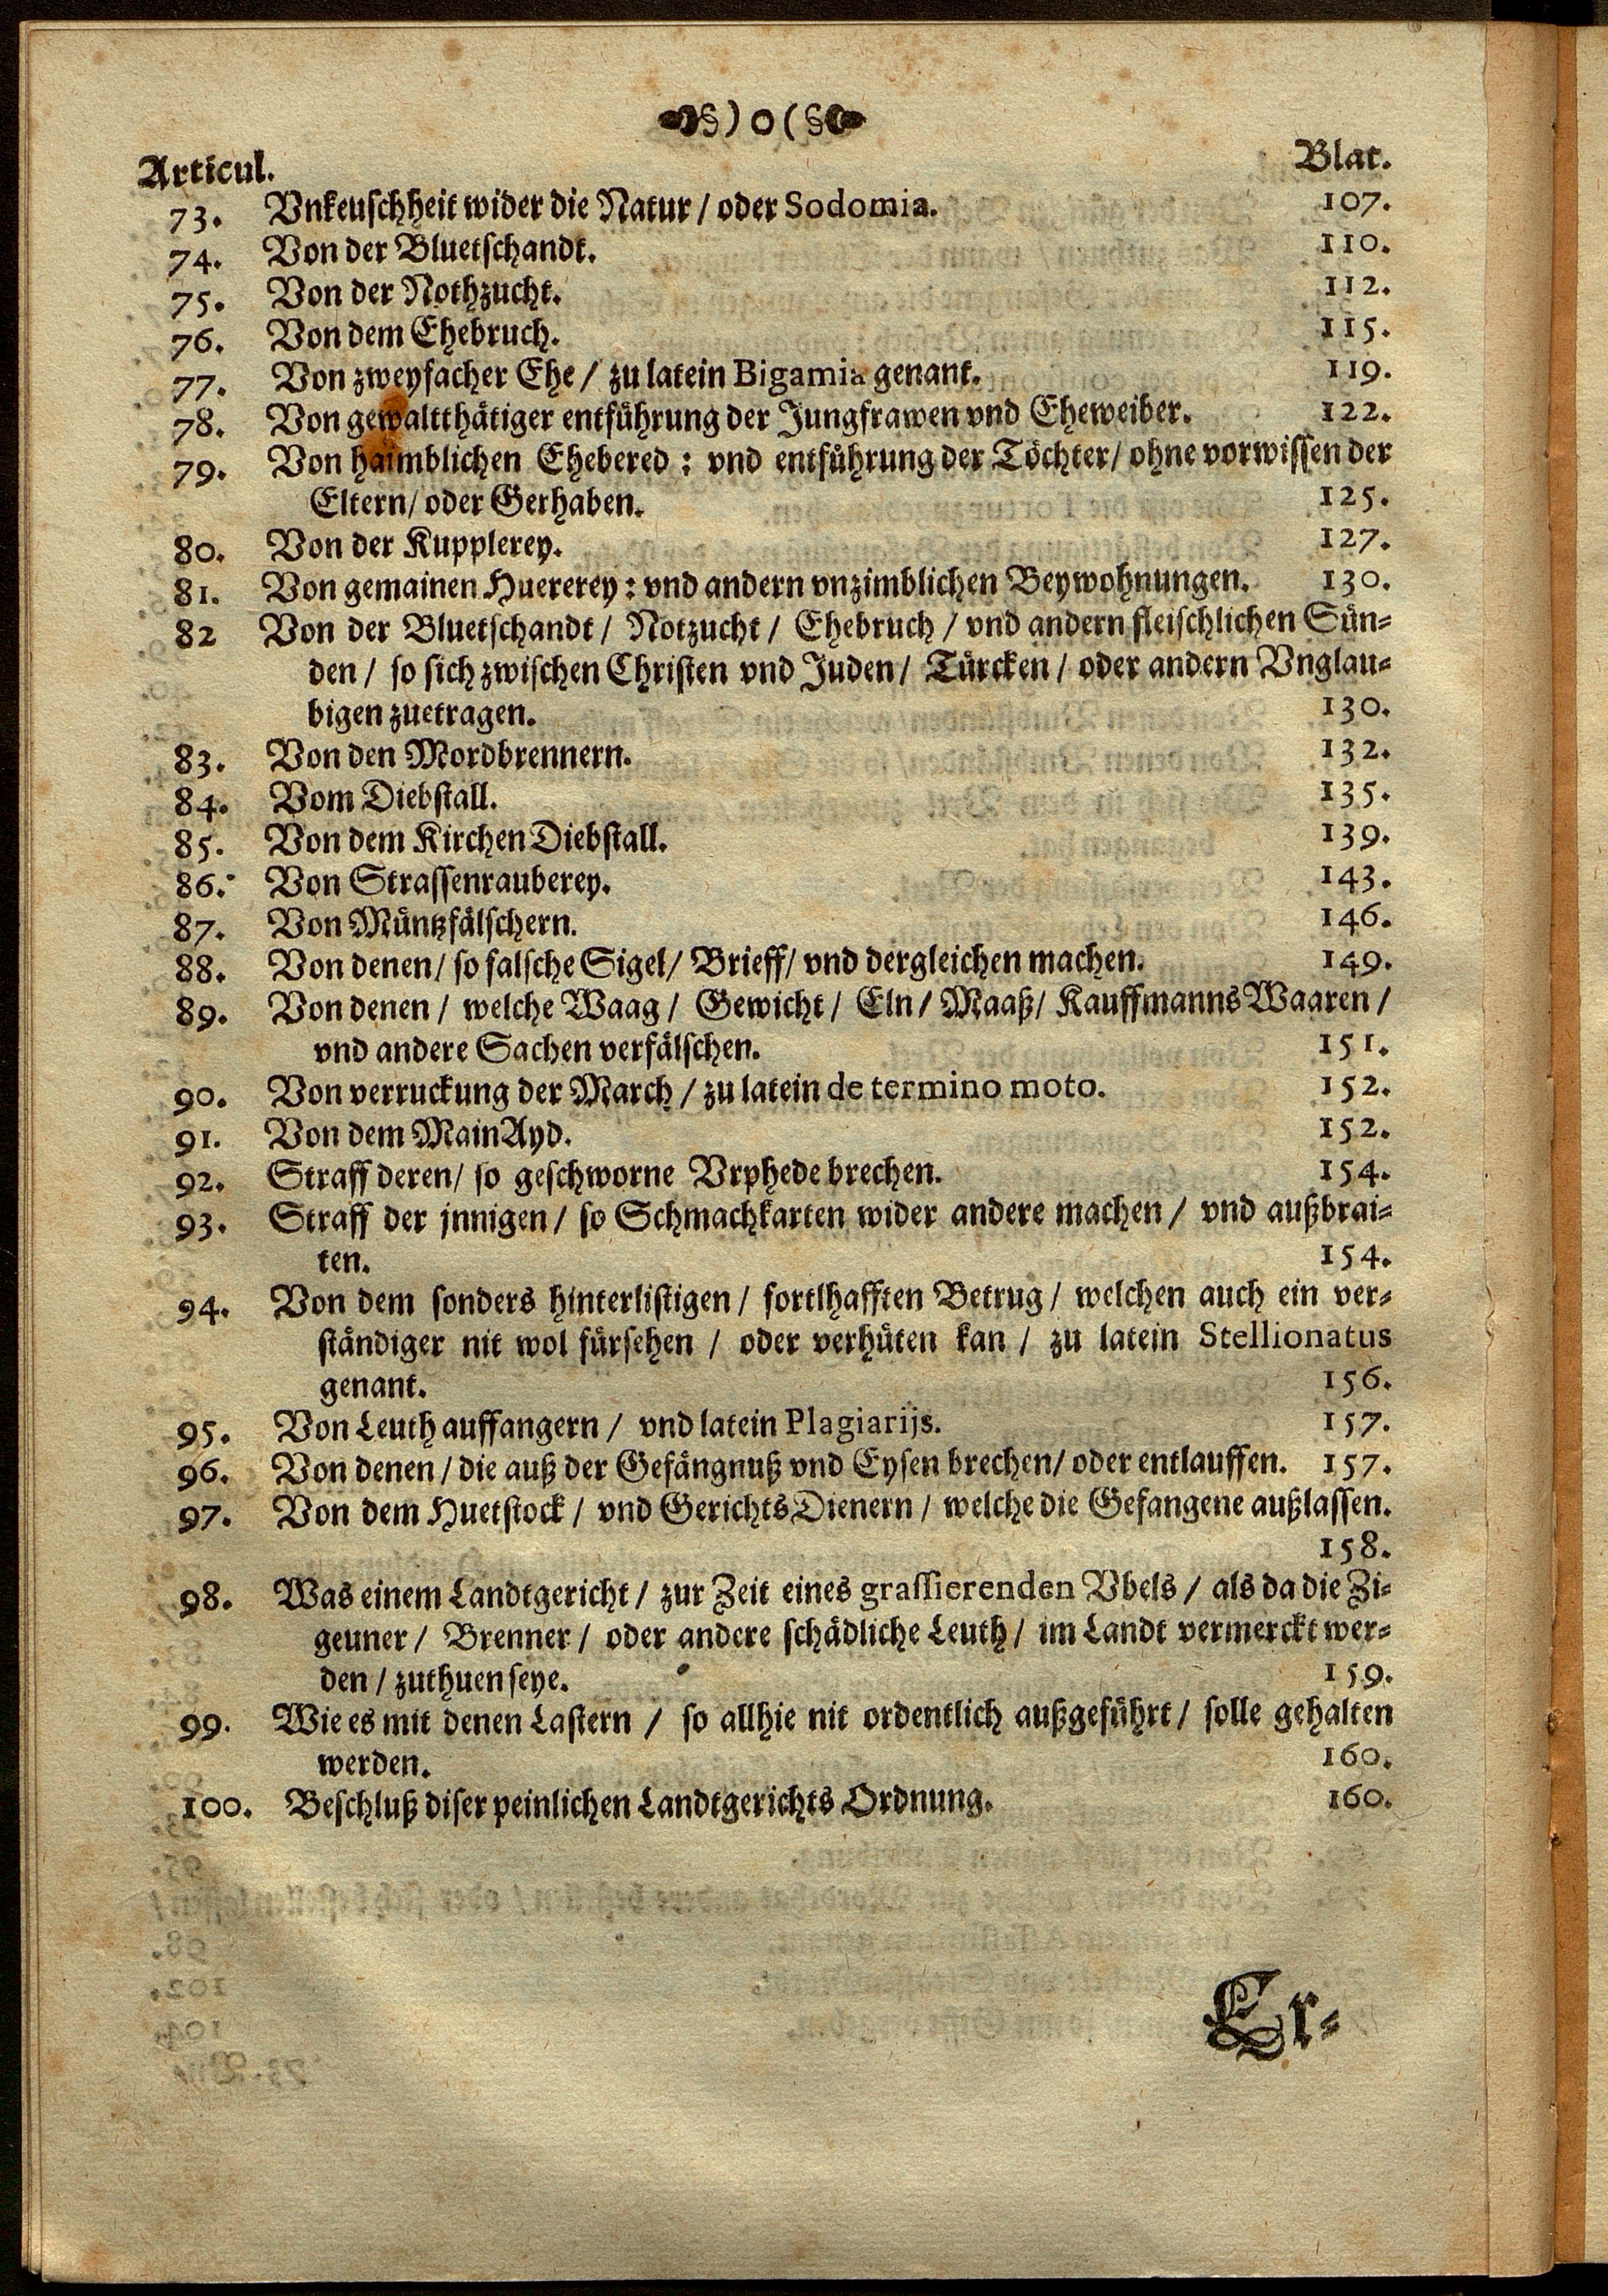 §)o(§
Articul. Blat.
73. Vnkeuschheit wider die Natur / oder Sodomia. 107.
74. Von der Bluetschandt. 110.
75. Von der Nothzucht. 112.
76. Von dem Ehebruch. 115.
77. Von zweyfacher Ehe / zu latein Bigamia genant. 119.
78. Von gewaltthätiger entführung der Jungfrawen vnd Eheweiber. 122.
79. Von haimblichen Ehebered : vnd entführung der Töchter / ohne vorwissen der
Eltern / oder Gerhaben. 125.
80. Von der Kupplerey. 127.
81. Von gemainen Huererey : vnd andern vnzimblichen Beywohnungen. 130.
82 Von der Bluetschandt / Notzucht / Ehebruch / vnd andern fleischlichen Sün-
den / so sich zwischen Christen vnd Juden / Türcken / oder andern Vnglau-
bigen zuetragen. 130.
83. Von den Mordbrennern. 132.
84. Vom Diebstall. 135.
85. Von dem Kirchen Diebstall. 139.
86. Von Strassenrauberey. 143.
87. Von Müntzfälschern. 146.
88. Von denen / so falsche Sigel / Brieff / vnd dergleichen machen. 149.
89. Von denen / welche Waag / Gewicht / Eln / Maaß / Kauffmanns Waaren /
vnd andere Sachen verfälschen. 151.
90. Von verruckung der March / zu latein de termino moto. 152.
91. Von dem MainAyd. 152.
92. Straff deren / so geschworne Vrphede brechen. 154.
93. Straff der jnnigen / so Schmachkarten wider andere machen / vnd außbrai-
ten. 154.
94. Von dem sonders hinterlistigen / fortlhafften Betrug / welchen auch ein ver-
ständiger nit wol fürsehen / oder verhüten kan / zu latein Stellionatus
genant. 156.
95. Von Leuth auffangern / vnd latein Plagiarijs. 157.
96. Von denen / die auß der Gefängnuß vnd Eysen brechen / oder entlauffen. 157.
97. Von dem Huetstock / vnd Gerichts Dienern / welche die Gefangene außlassen.
158.
98. Was einem Landtgericht / zur Zeit eines grassierenden Vbels / als da die Zi-
geuner / Brenner / oder andere schädliche Leuth / im Landt vermerckt wer-
den / zuthuen seye. 159.
99. Wie es mit denen Lastern / so allhie nit ordentlich außgeführt / solle gehalten
werden. 160.
100. Beschluß diser peinlichen Landtgerichts Ordnung. 160.
Er-